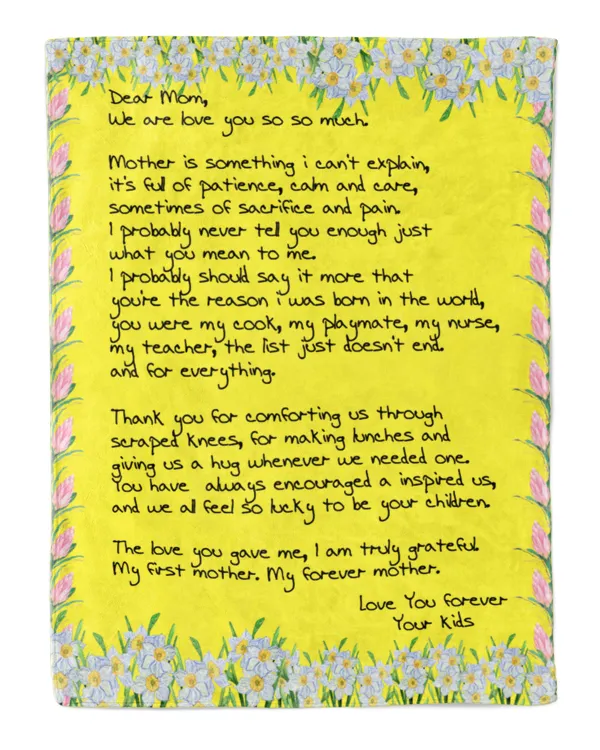 Dear Mom,
We are love you so so much.
Mother is something i can't explain,
it's full of patience, calm and care,
sometimes of sacrifice and pain.
I probably never tell you enough just
what you mean to me.
I probably should say it more that
you're the reason i was born in the world,
you were my cook, my playmate, my nurse,
my teacher, the list just doesn't end.
and for everything.
Thank you for comforting us through
scraped knees, for making lunches and
giving us a hug whenever we needed one.
You have always encouraged a inspired us,
and we all feel so lucky to be your children.
The love you gave me, I am truly grateful.
My first mother. My forever mother.
Love You forever
Your kids